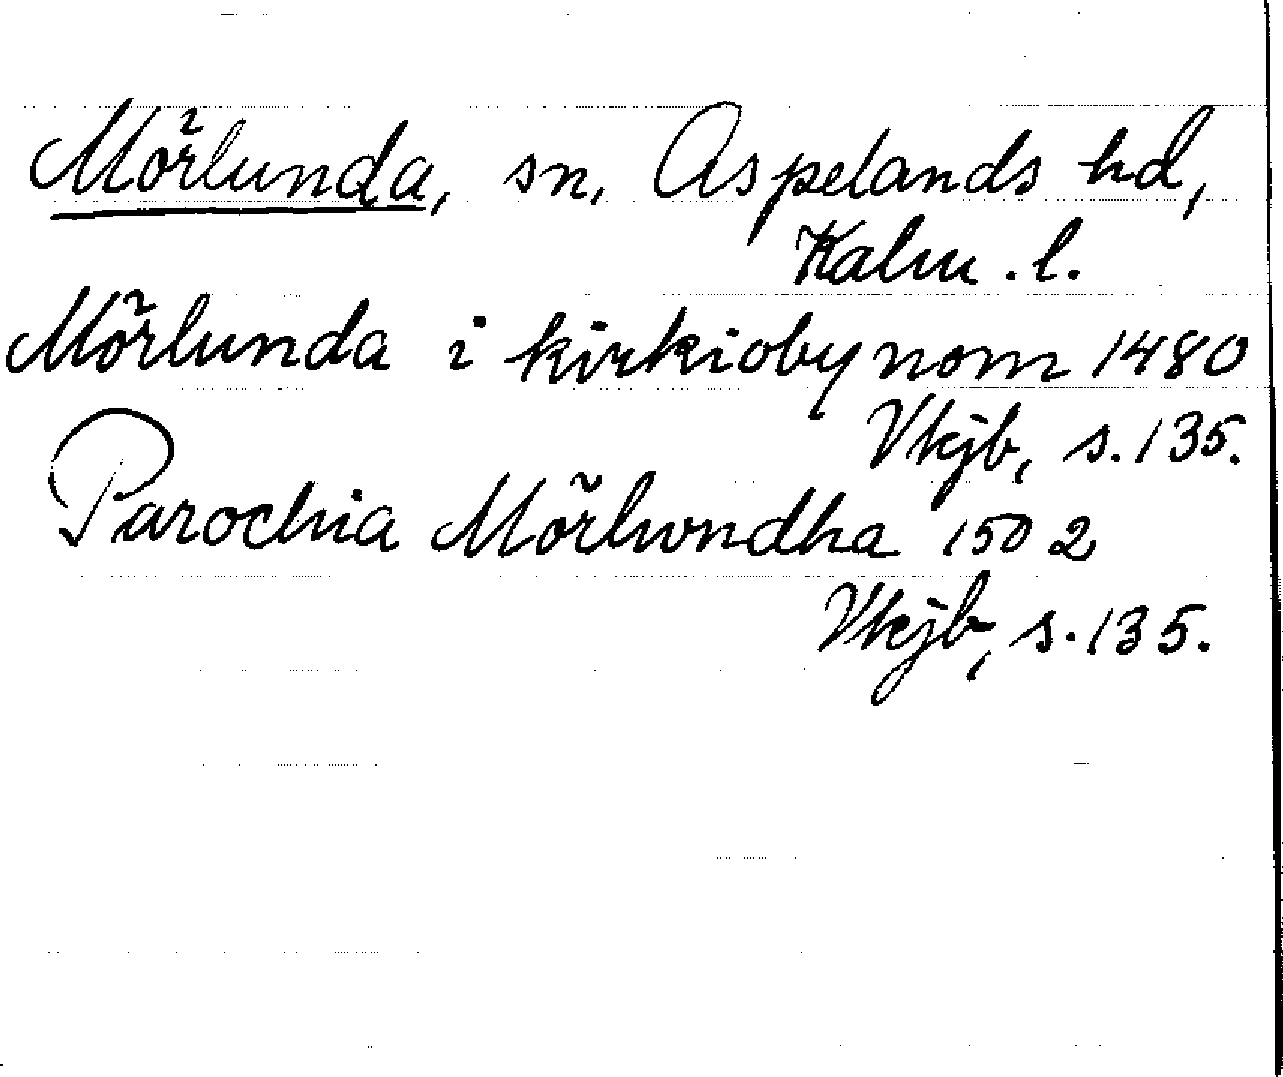 Mörlunda, sn, Aspelands hd,
Kalm. l.
Mörlunda i kirkioby nom 1480
Vkjb, s. 135.
Parochia Mörlwndha 1502
Vkjb, s. 135.